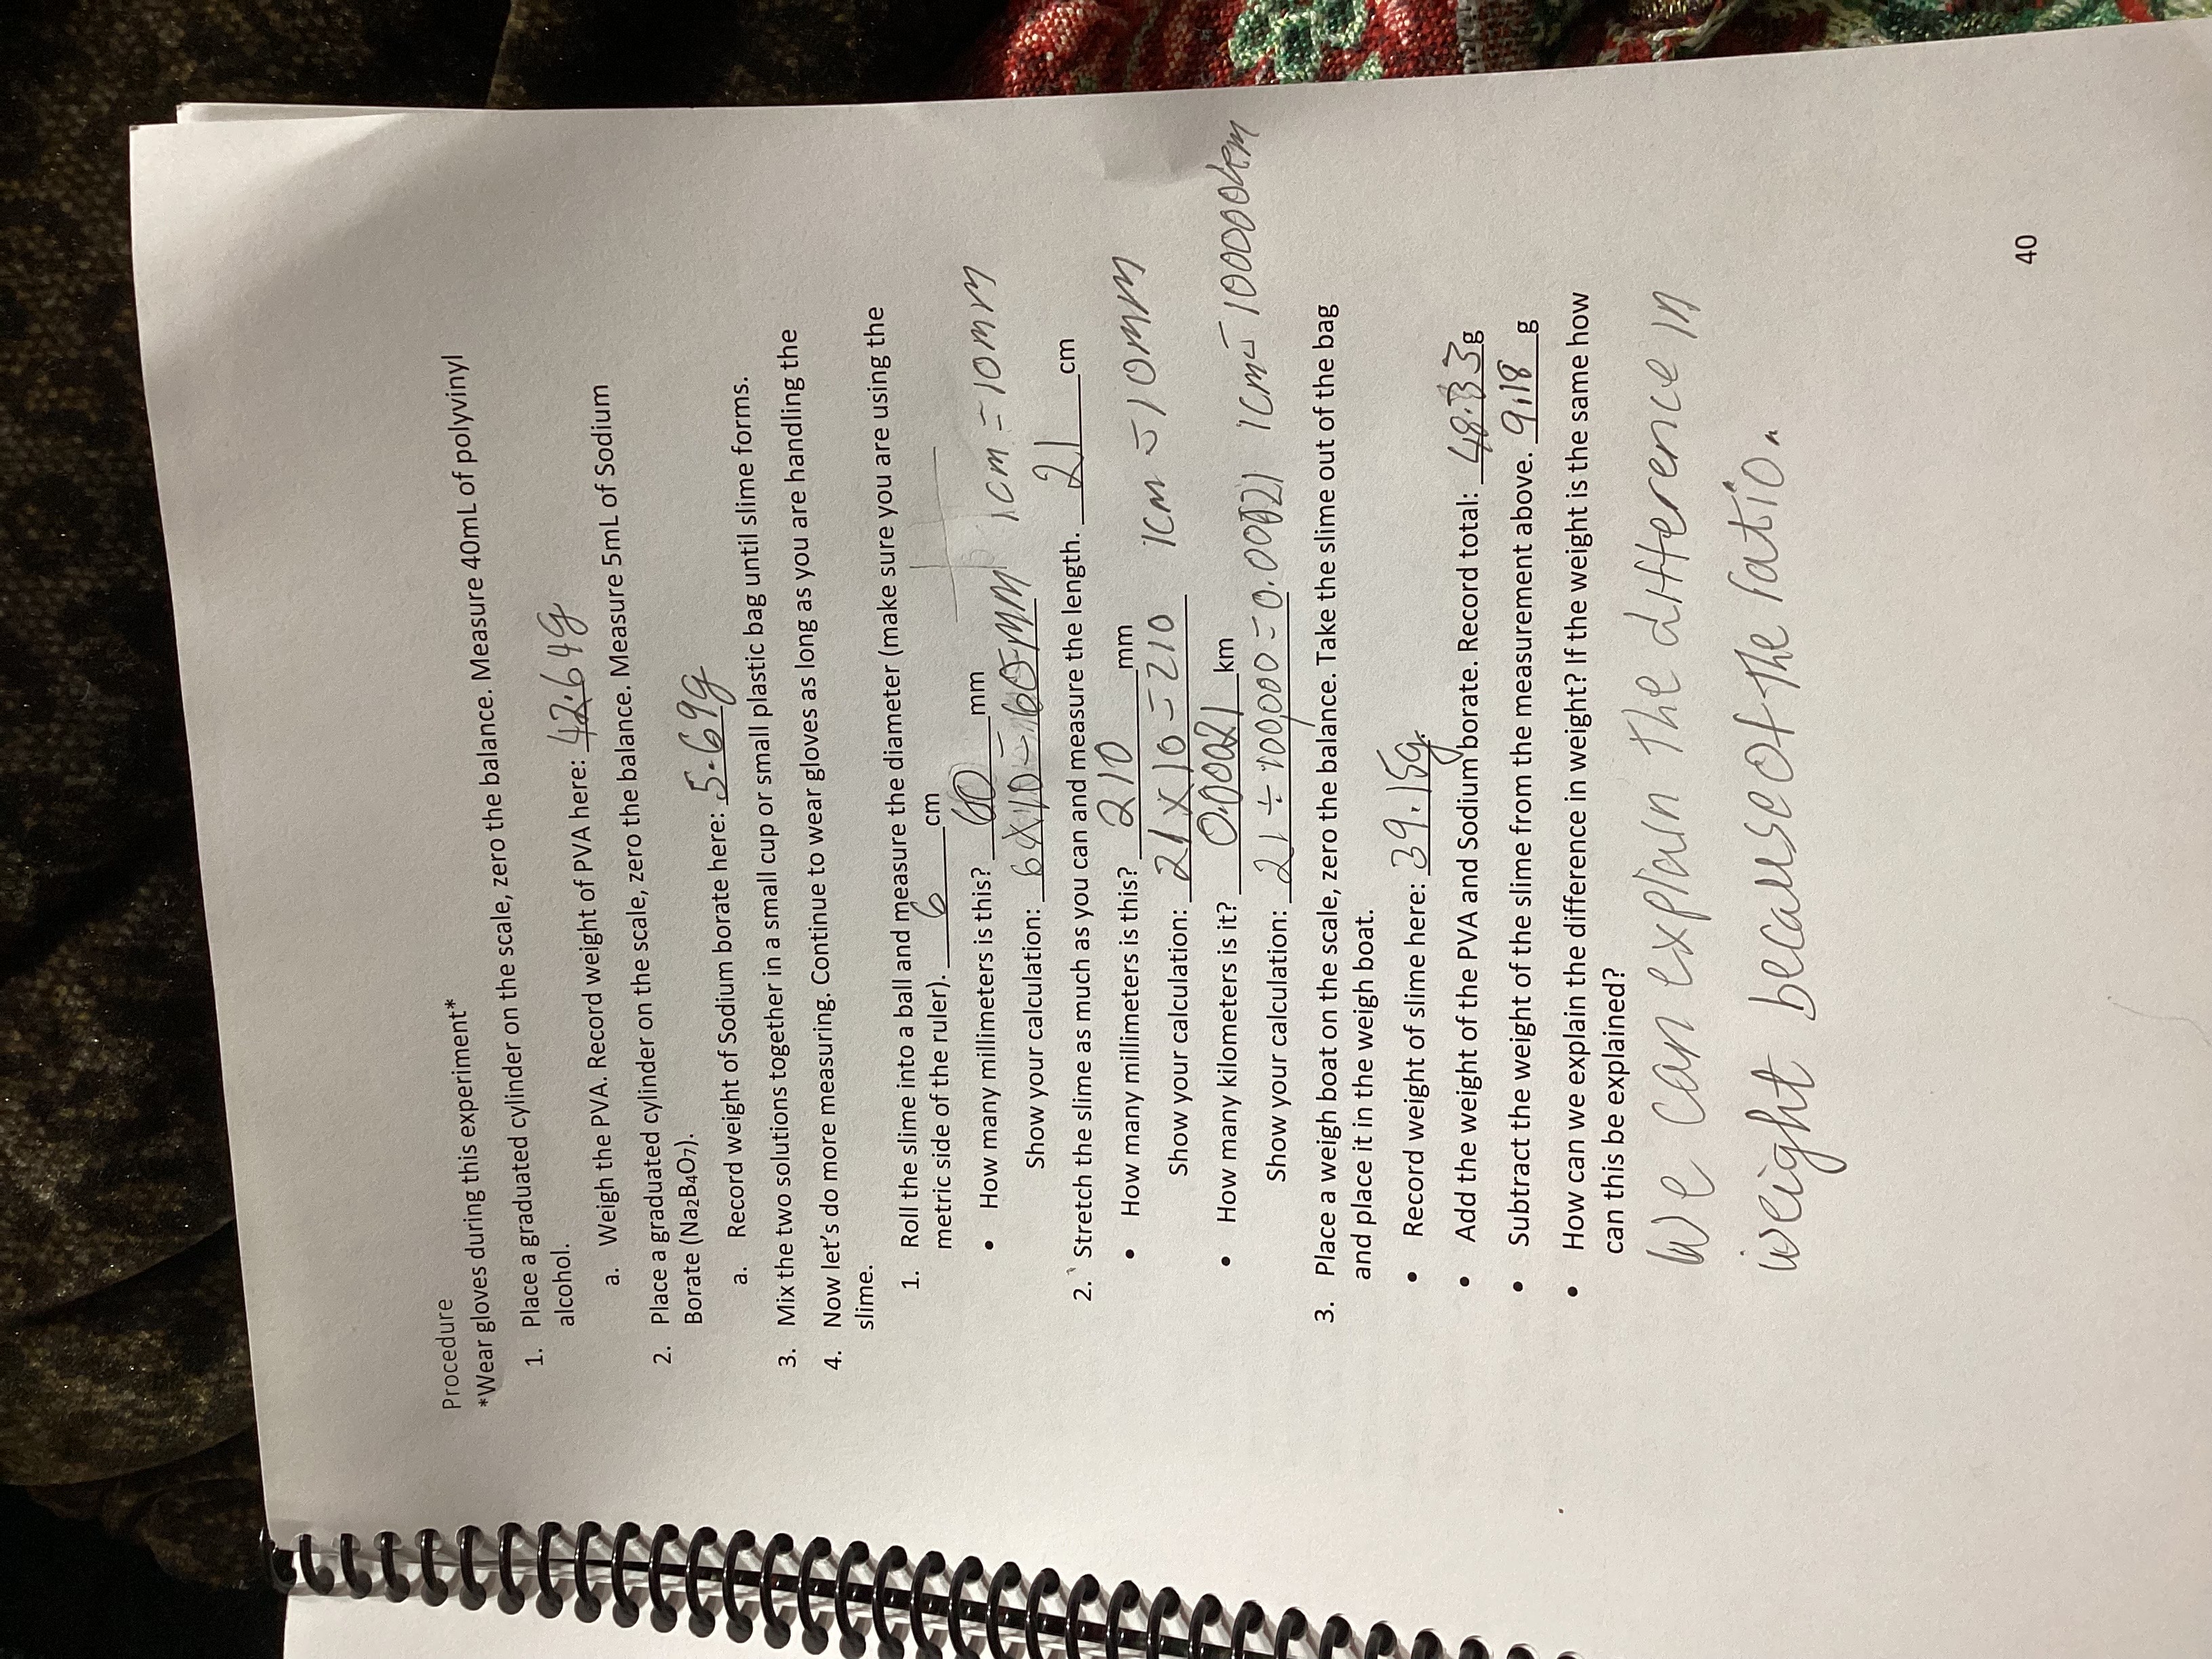 Procedure
*Wear gloves during this experiment*
1. Place a graduated cylinder on the scale, zero the balance. Measure 40mL of polyvinyl
alcohol.
a. Weigh the PVA. Record weight of PVA here: 42.64g
2. Place a graduated cylinder on the scale, zero the balance. Measure 5mL of Sodium
Borate (Na₂B₄O₇).
a. Record weight of Sodium borate here: 5.69g
3. Mix the two solutions together in a small cup or small plastic bag until slime forms.
4. Now let's do more measuring. Continue to wear gloves as long as you are handling the
slime.
1. Roll the slime into a ball and measure the diameter (make sure you are using the
metric side of the ruler). 6 cm
• How many millimeters is this? 60 mm
Show your calculation: 6×10=60 MM 1cm=10mm
2. Stretch the slime as much as you can and measure the length. 21 cm
• How many millimeters is this? 210 mm
Show your calculation: 21×10=210 1cm=10mm
• How many kilometers is it? 0.00021 km
Show your calculation: 21÷100,000=0.00021 1cm=100000km
3. Place a weigh boat on the scale, zero the balance. Take the slime out of the bag
and place it in the weigh boat.
• Record weight of slime here: 39.15g.
• Add the weight of the PVA and Sodium borate. Record total: 48.33g
• Subtract the weight of the slime from the measurement above. 9.18 g
• How can we explain the difference in weight? If the weight is the same how
can this be explained?
We can explain the difference in
weight because of the ratio.
40